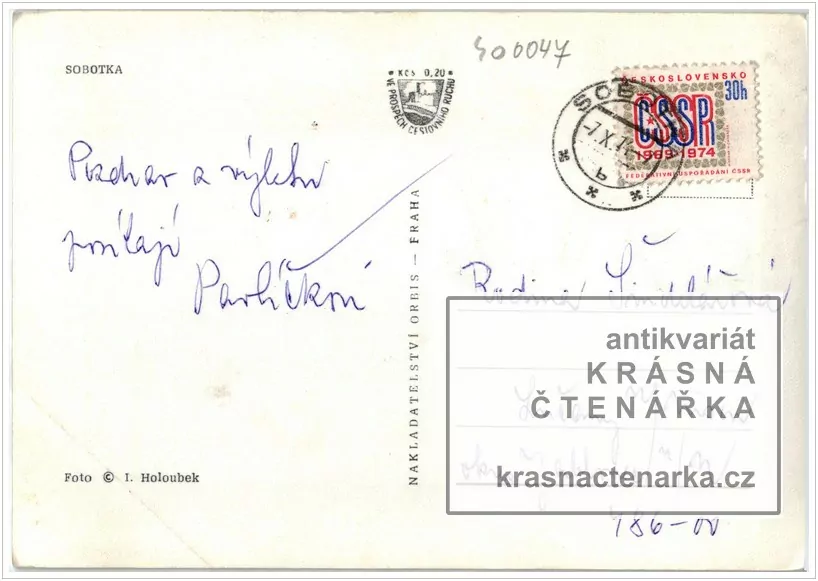 SOBOTKA
Kčs 0,20
VE PROSPĚCH CESTOVNÍHO RUCHU
S00047
ČESKOSLOVENSKO
30h
ČSSR
1969-1974
FEDERATIVNÍ USPOŘÁDÁNÍ ČSSR
SOB
-7.X.7
b
Pozdrav z výletu
posílají
Pavlíčkovi
NAKLADATELSTVÍ ORBIS — PRAHA
Rodina Šindelářová
antikvariát
KRÁSNÁ
ČTENÁŘKA
krasnactenarka.cz
Foto © I. Holoubek
486-00